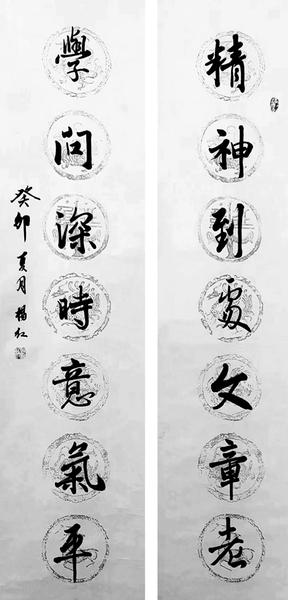 精神到處文章老
學問深時意氣平
癸卯夏月楊紅